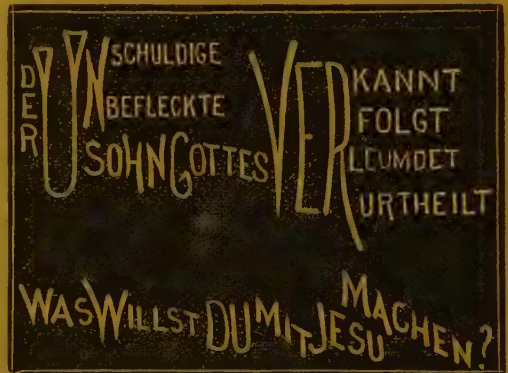 DER UN SCHULDIGE
BEFLECKTE
SOHN GOTTES
VER KANNT
FOLGT
LEUMDET
URTHEILT
WAS WILLST DU MIT JESU MACHEN?